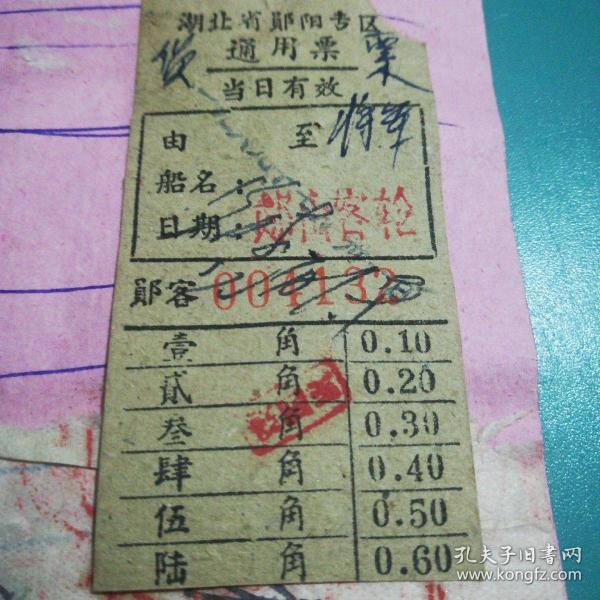 湖北省郧阳专区
通用票
货 票
当日有效
由 至 将军
船名:
日期:
客轮
郧客 004132
壹 角 0.10
贰 角 0.20
叁 角 0.30
肆 角 0.40
伍 角 0.50
陆 角 0.60
孔夫子旧书网
www.kongfz.com